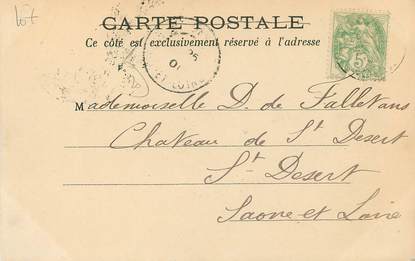 lot
CARTE POSTALE
Ce côté est exclusivement réservé à l'adresse
25
01
ET LOIRE
5
Mademoiselle D. de Falletans
Chateau de St Desert
St Desert
Saone et Loire